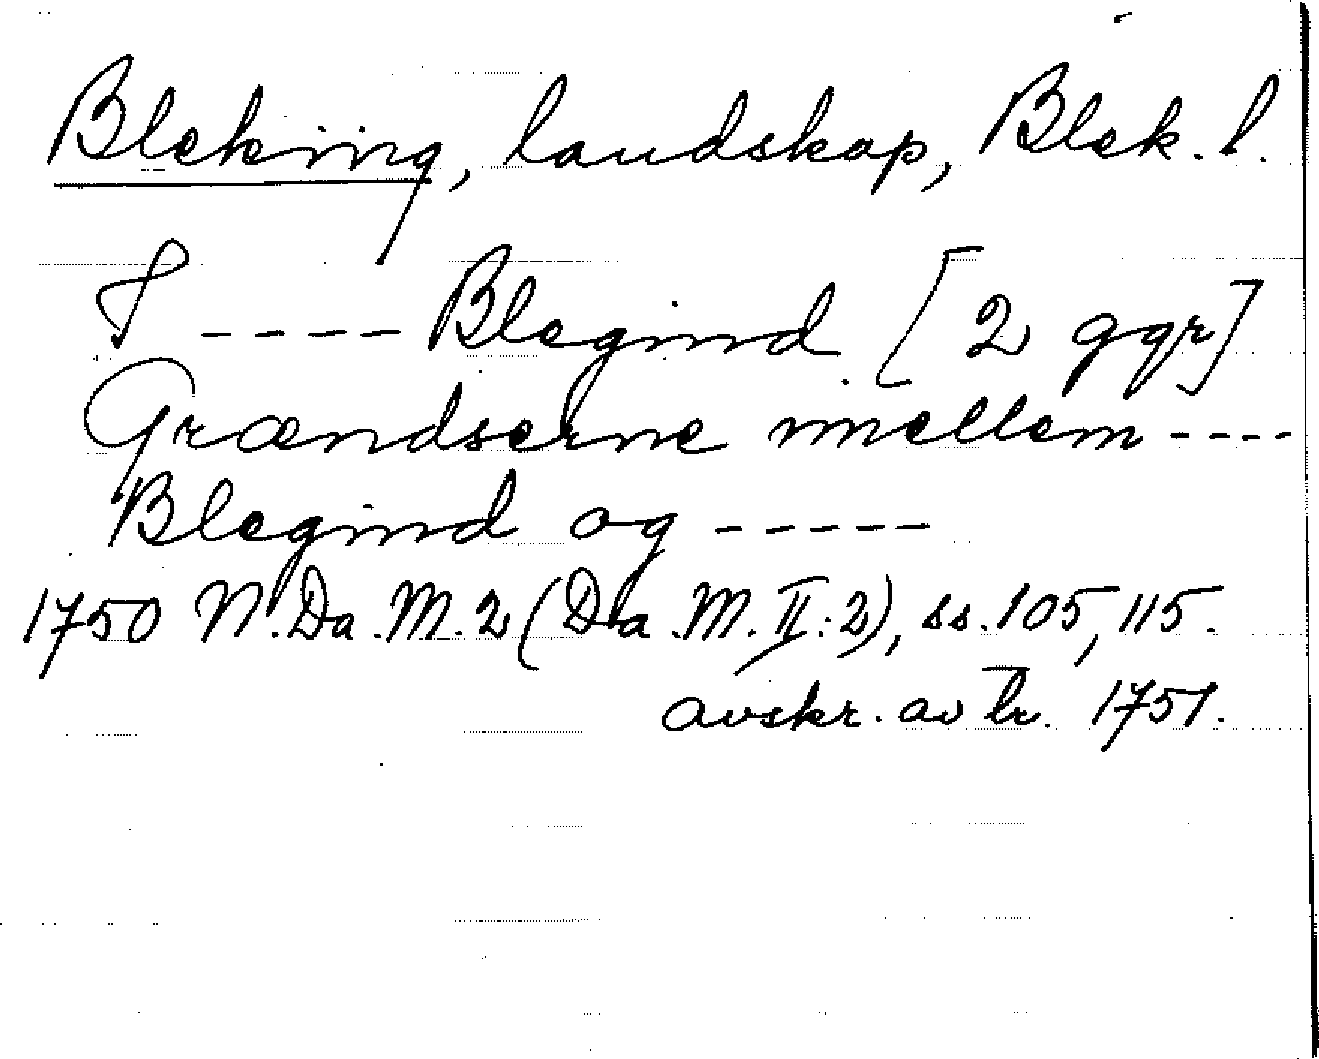 Blekiing, landskap, Blek. l.
I ---- Blegind. [2 ggr]
Grændserne imellem ----
Blegind og -----
1750 N. Da. M. 2 (Da. M. II: 2), ss. 105, 115.
avskr. av tr. 1751.